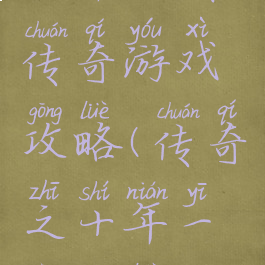 chuán qí yóu xì
传奇游戏
gōng lüè chuán qí
攻略(传奇
zhī shí nián yī
之十年一